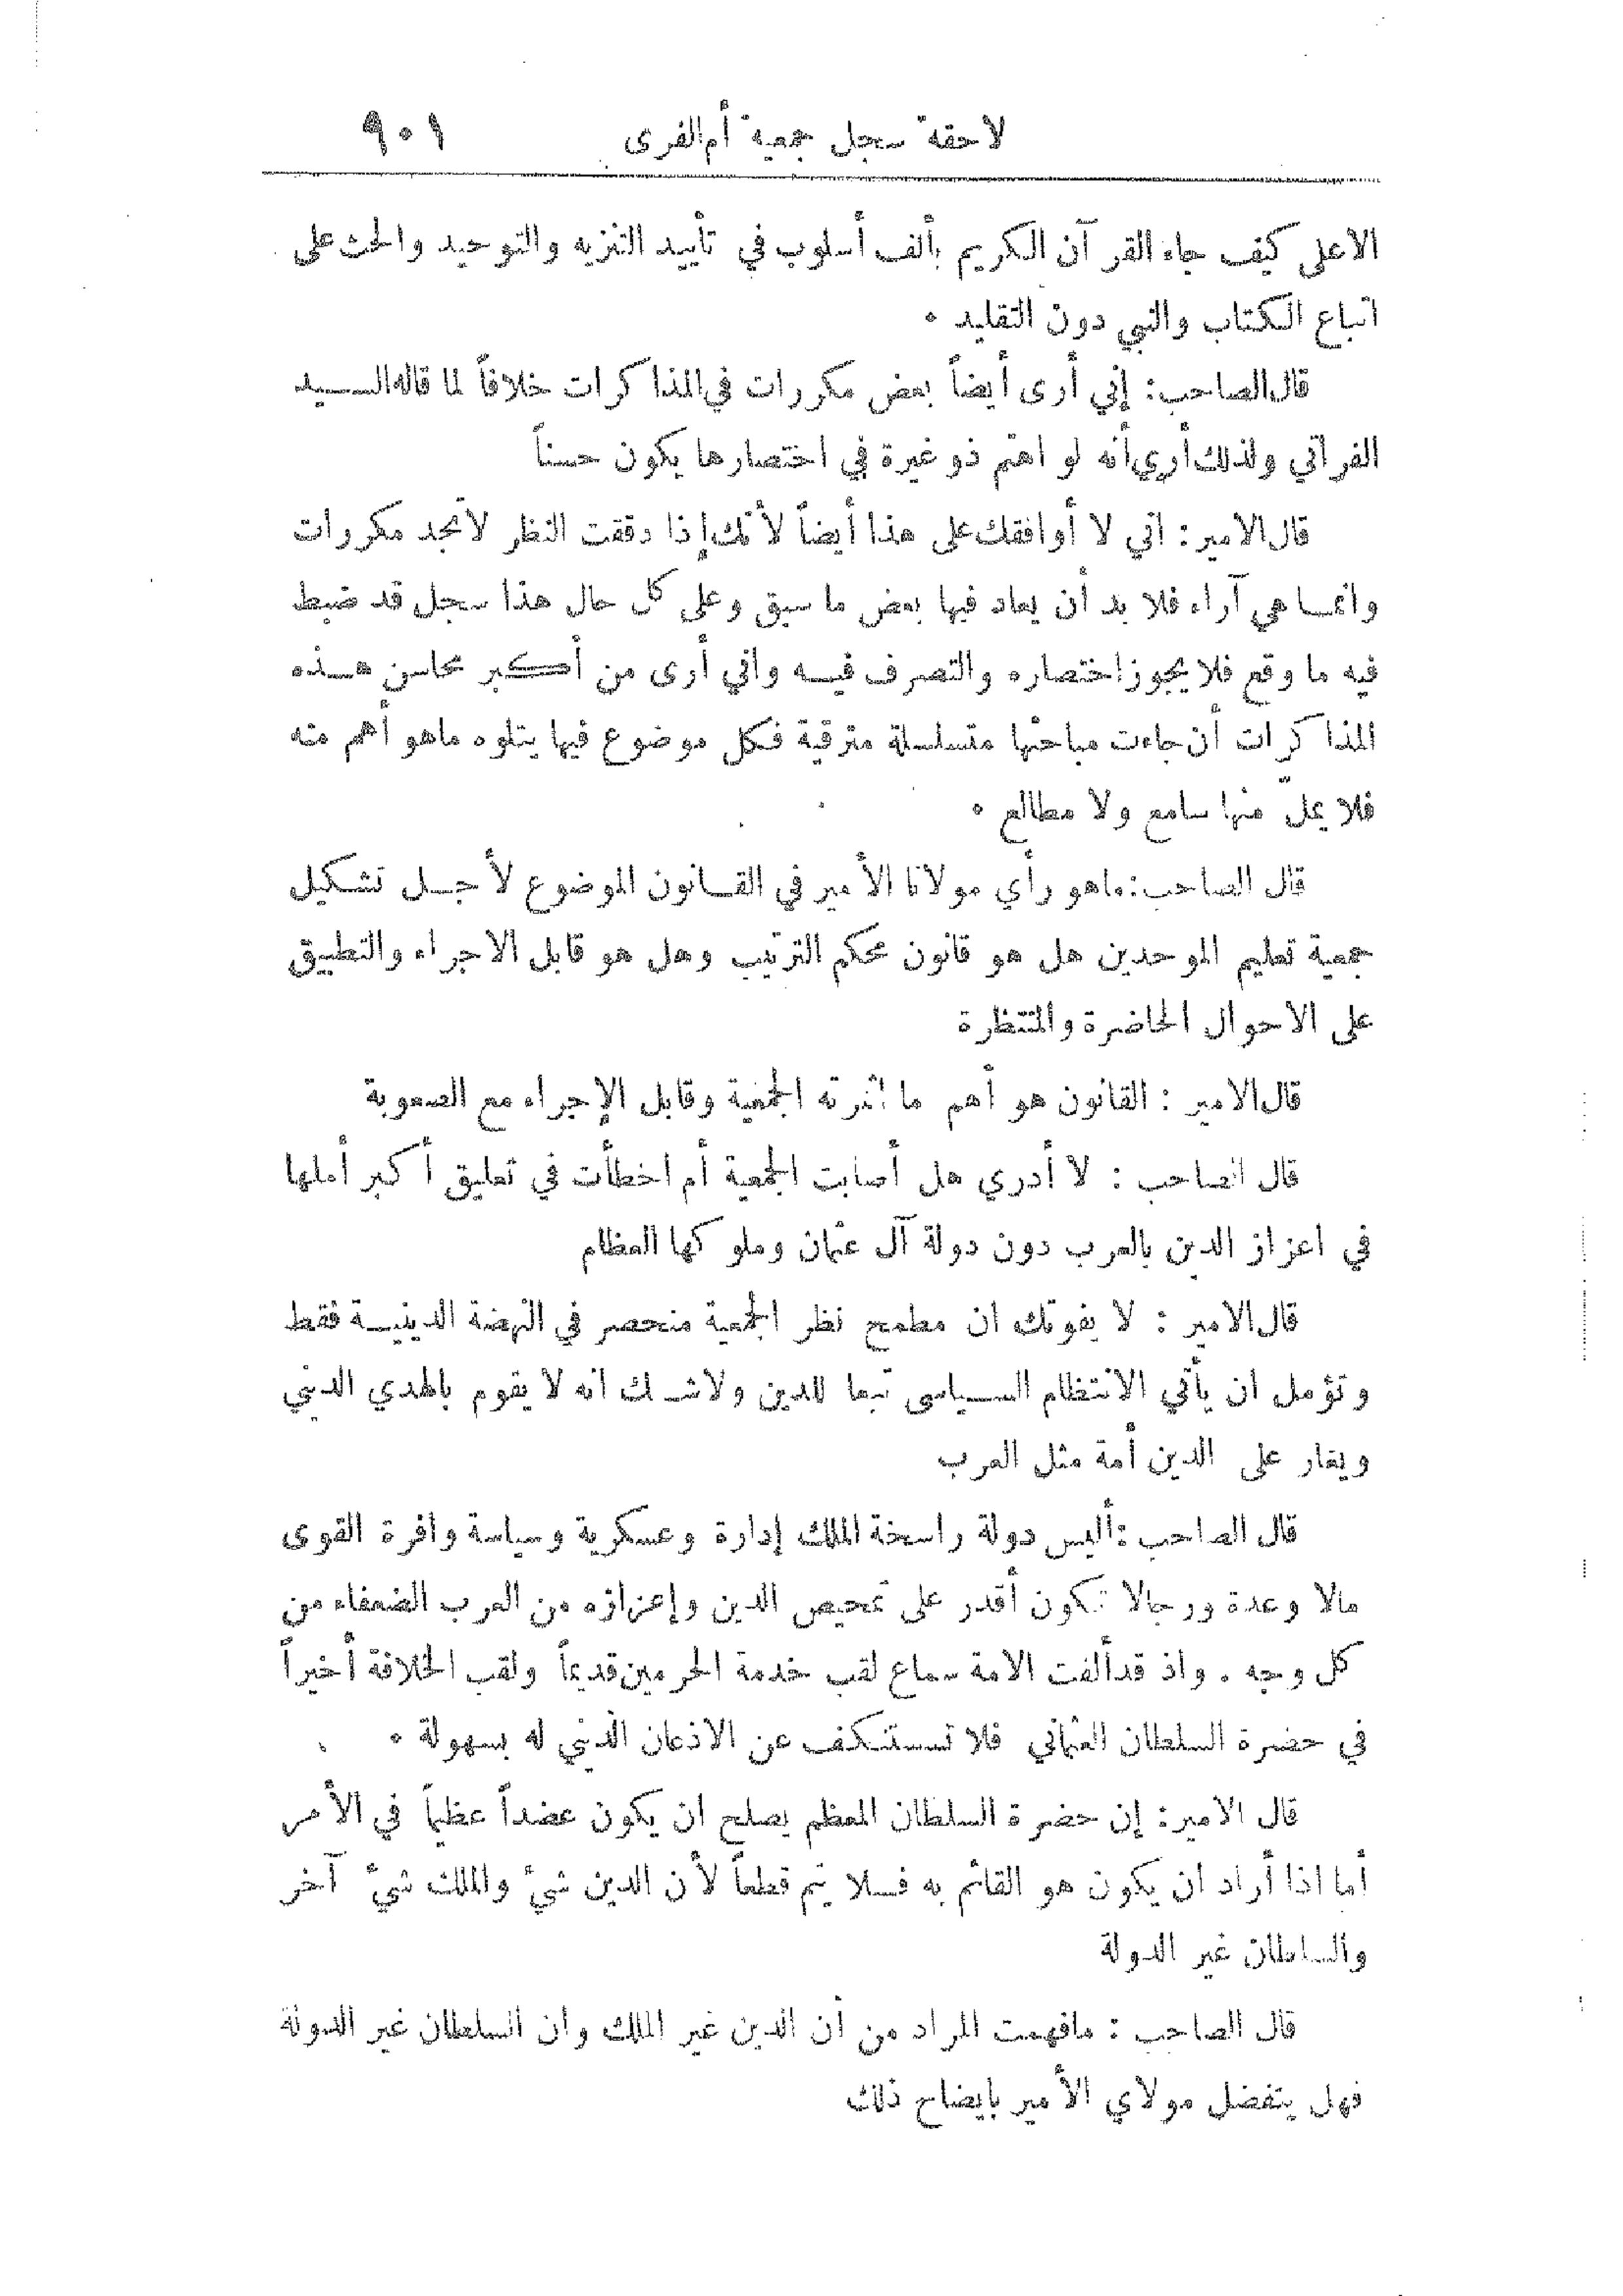 لاحقة سجل جمعية أم القرى ٩٠١
الاعلى كيف جاء القرآن الكريم بألف أسلوب في تأييد التنزيه والتوحيد والحث على
اتباع الكتاب والنبي دون التقليد .
قال الصاحب: إني أرى أيضاً بعض مكررات في المذاكرات خلافاً لما قاله السيد
الفراتي ولذلك أرى أنه لو اهتم ذو غيرة في اختصارها يكون حسناً
قال الامير: اني لا أوافقك على هذا أيضاً لأنك إذا دققت النظر لا تجد مكررات
وانما هي آراء فلا بد أن يعاد فيها بعض ما سبق وعلى كل حال هذا سجل قد ضبط
فيه ما وقع فلا يجوز اختصاره والتصرف فيه واني أرى من أكبر محاسن هذه
المذاكرات أن جاءت مباحثها متسلسلة مترقية فكل موضوع فيها يتلوه ما هو أهم منه
فلا يملّ منها سامع ولا مطالع .
قال الصاحب: ماهو رأي مولانا الأمير في القانون الموضوع لأجل تشكيل
جمعية تعليم الموحدين هل هو قانون محكم الترتيب وهل هو قابل الاجراء والتطبيق
على الاحوال الحاضرة والمنتظرة
قال الامير : القانون هو أهم ما اثمرته الجمعية وقابل الإجراء مع الصعوبة
قال الصاحب : لا أدري هل أصابت الجمعية أم اخطأت في تعليق أكبر أملها
في اعزاز الدين بالعرب دون دولة آل عثمان وملوكها العظام
قال الامير : لا يفوتك ان مطمح نظر الجمعية منحصر في النهضة الدينية فقط
وتؤمل ان يأتي الانتظام السياسى تبعا للدين ولا شك انه لا يقوم بالهدي الديني
ويغار على الدين أمة مثل العرب
قال الصاحب : أليس دولة راسخة الملك إدارة وعسكرية وسياسة وافرة القوى
مالا وعدة ورجالا تكون أقدر على تمحيص الدين وإعزازه من العرب الضعفاء من
كل وجه . واذ قد ألفت الامة سماع لقب خدمة الحرمين قديماً ولقب الخلافة أخيراً
في حضرة السلطان العثماني فلا تستنكف عن الاذعان الديني له بسهولة .
قال الامير: إن حضرة السلطان المعظم يصلح ان يكون عضداً عظيماً في الأمر
أما اذا أراد ان يكون هو القائم به فلا يتم قطعاً لأن الدين شيءٌ والملك شيءٌ آخر
والسلطان غير الدولة
قال الصاحب : مافهمت المراد من أن الدين غير الملك وان السلطان غير الدولة
فهل يتفضل مولاي الأمير بايضاح ذلك